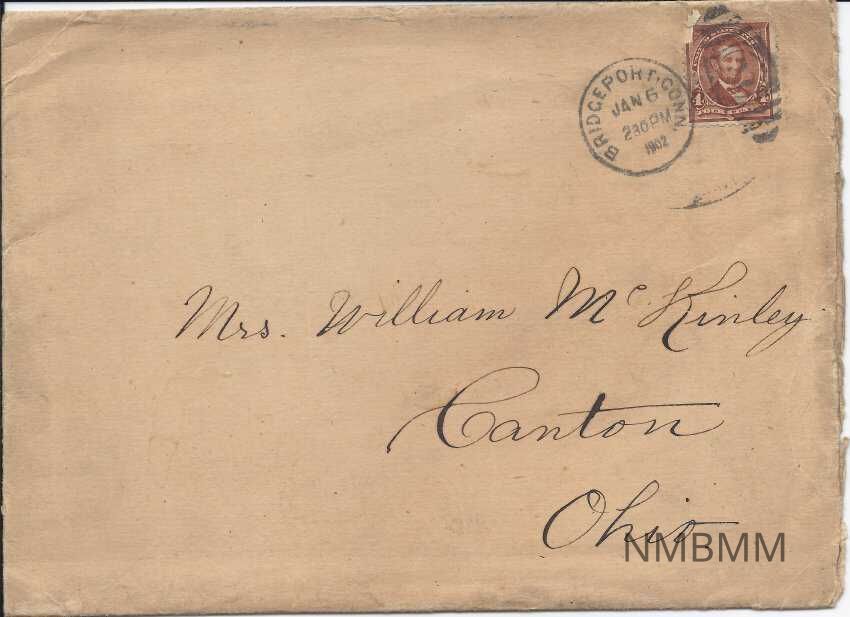 BRIDGEPORT, CONN.
JAN 6
230PM
1902
4 4
Mrs. William McKinley
Canton
Ohio
NMBMM